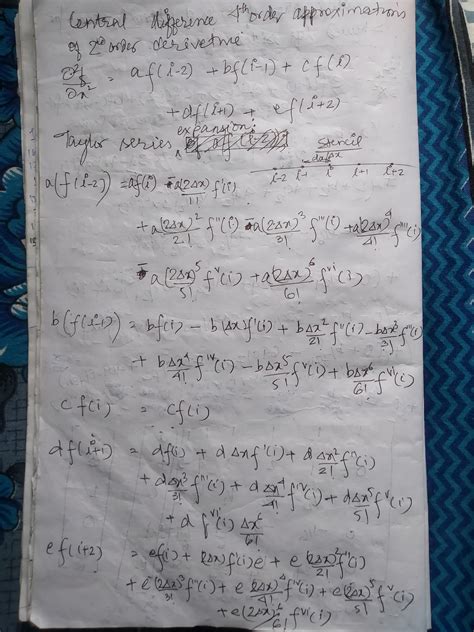 Central difference 4th order approximations
of 2nd order derivetive
∂²f/∂x² = af(i-2) + bf(i-1) + cf(i)
+ df(i+1) + ef(i+2)
Taylor series expansion:
Stencil
Δx
i-2 i-1 i i+1 i+2
a(f(i-2)) = af(i) - a(2Δx)/1! f'(i)
+ a(2Δx)²/2! f''(i) - a(2Δx)³/3! f'''(i) + a(2Δx)⁴/4! f''''(i)
- a(2Δx)⁵/5! f^v(i) + a(2Δx)⁶/6! f^vi(i)
b(f(i-1)) = bf(i) - b(Δx)f'(i) + bΔx²/2! f''(i) - bΔx³/3! f'''(i)
+ bΔx⁴/4! f^iv(i) - bΔx⁵/5! f^v(i) + bΔx⁶/6! f^vi(i)
cf(i) = cf(i)
df(i+1) = df(i) + dΔxf'(i) + dΔx²/2! f''(i)
+ dΔx³/3! f'''(i) + dΔx⁴/4! f^iv(i) + dΔx⁵/5! f^v(i)
+ d f^vi(i) Δx⁶/6!
ef(i+2) = ef(i) + (2Δx)f'(i)e + e(2Δx)²/2! f''(i)
+ e(2Δx)³/3! f'''(i) + e(2Δx)⁴/4! f^iv(i) + e(2Δx)⁵/5! f^v(i)
+ e(2Δx)⁶/6! f^vi(i)